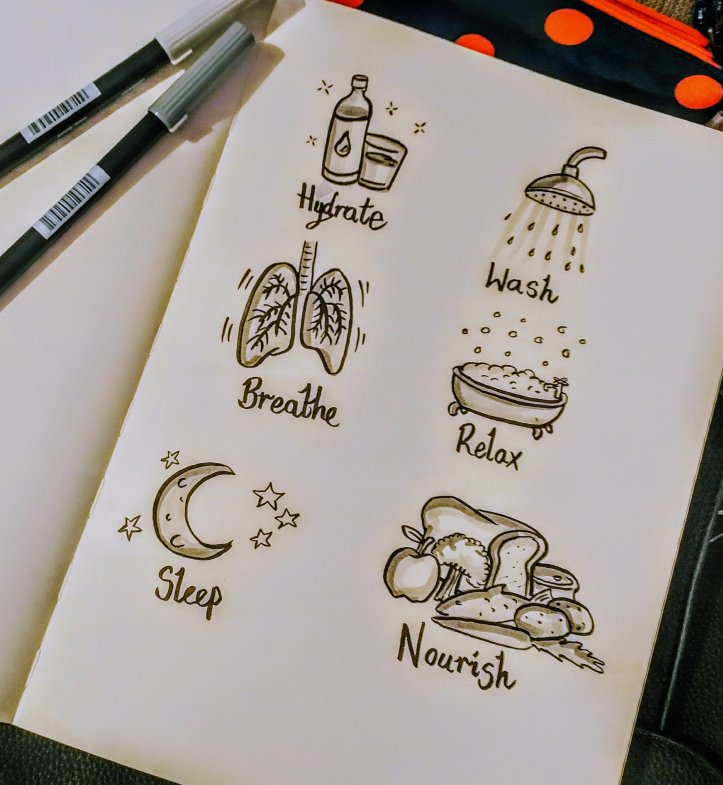 Hydrate
Wash
Breathe
Relax
Sleep
Nourish